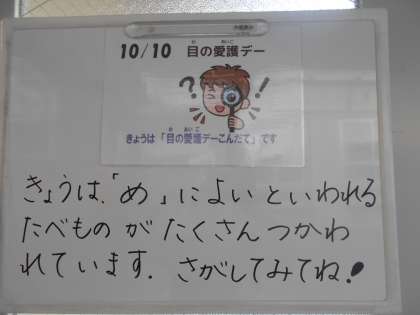 10/10 目の愛護デー
?
!
きょうは「目の愛護デーこんだて」です
きょうは、「め」によいといわれる
たべものがたくさんつかわ
れています. さがしてみてね!